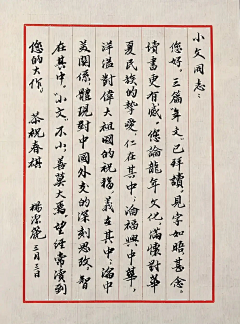 小文同志：
您好，三篇年文已拜讀，見字如晤，甚念。
讀書更有感。您論龍年文化，滿懷對華
夏民族的摯愛，仁在其中；論福興中華，
洋溢對偉大祖國的祝福，義在其中；論中
美關係，體現對中國外交的深刻思考，智
在其中。小文不小，善莫大焉，望經常讀到
您的大作。
恭祝春祺
楊潔篪
三月三日